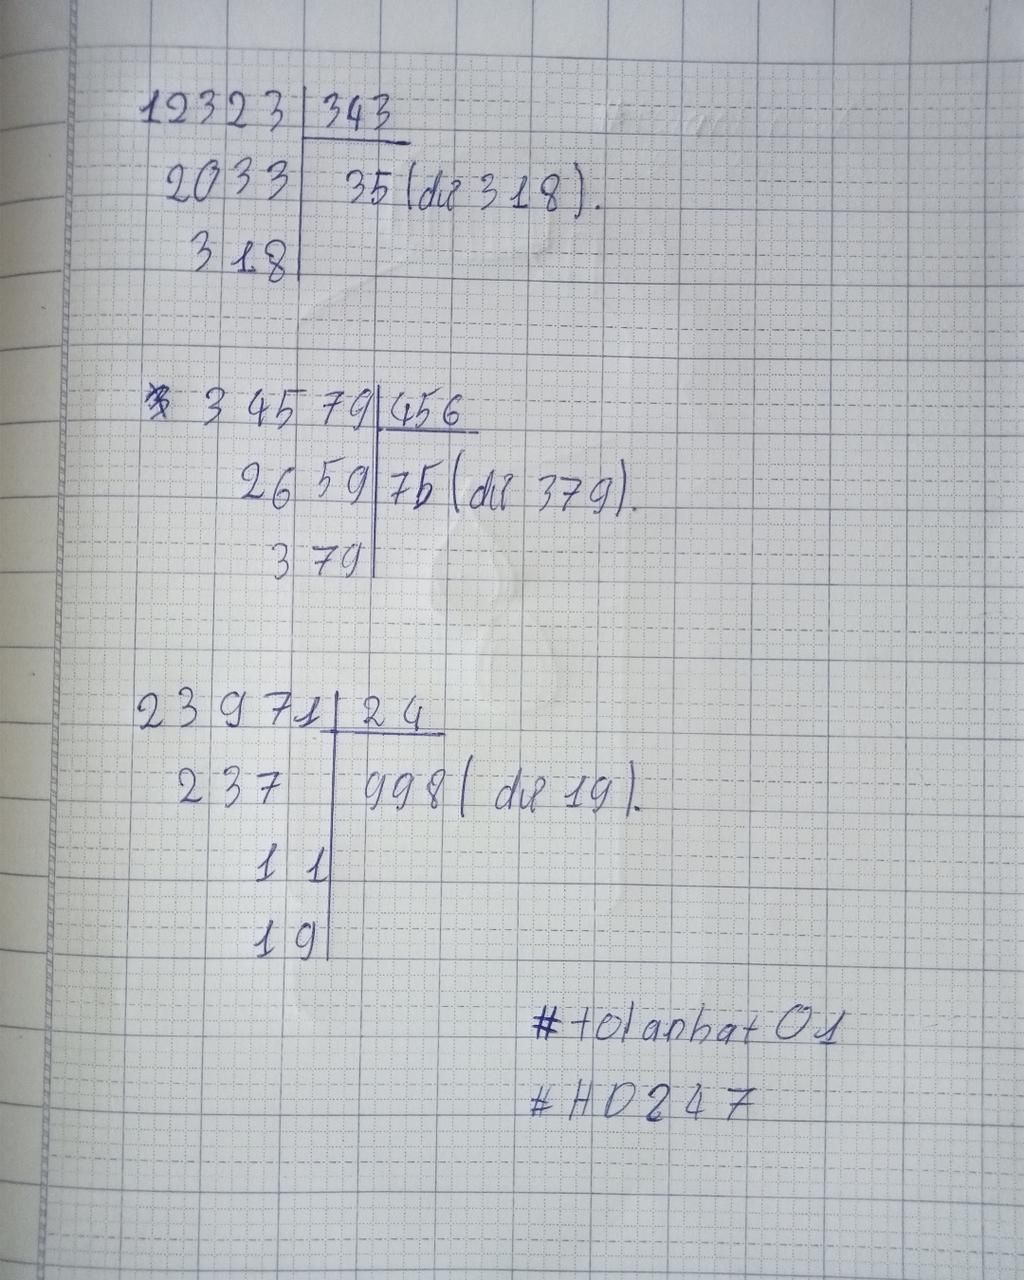 12323 343
2033 35 (dư 318).
318
34579 456
2659 75 (dư 379).
379
23971 24
237 998 (dư 19).
11
19
#tolanhat01
#HD247